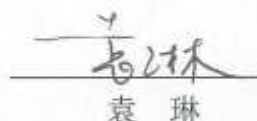 袁琳
袁琳